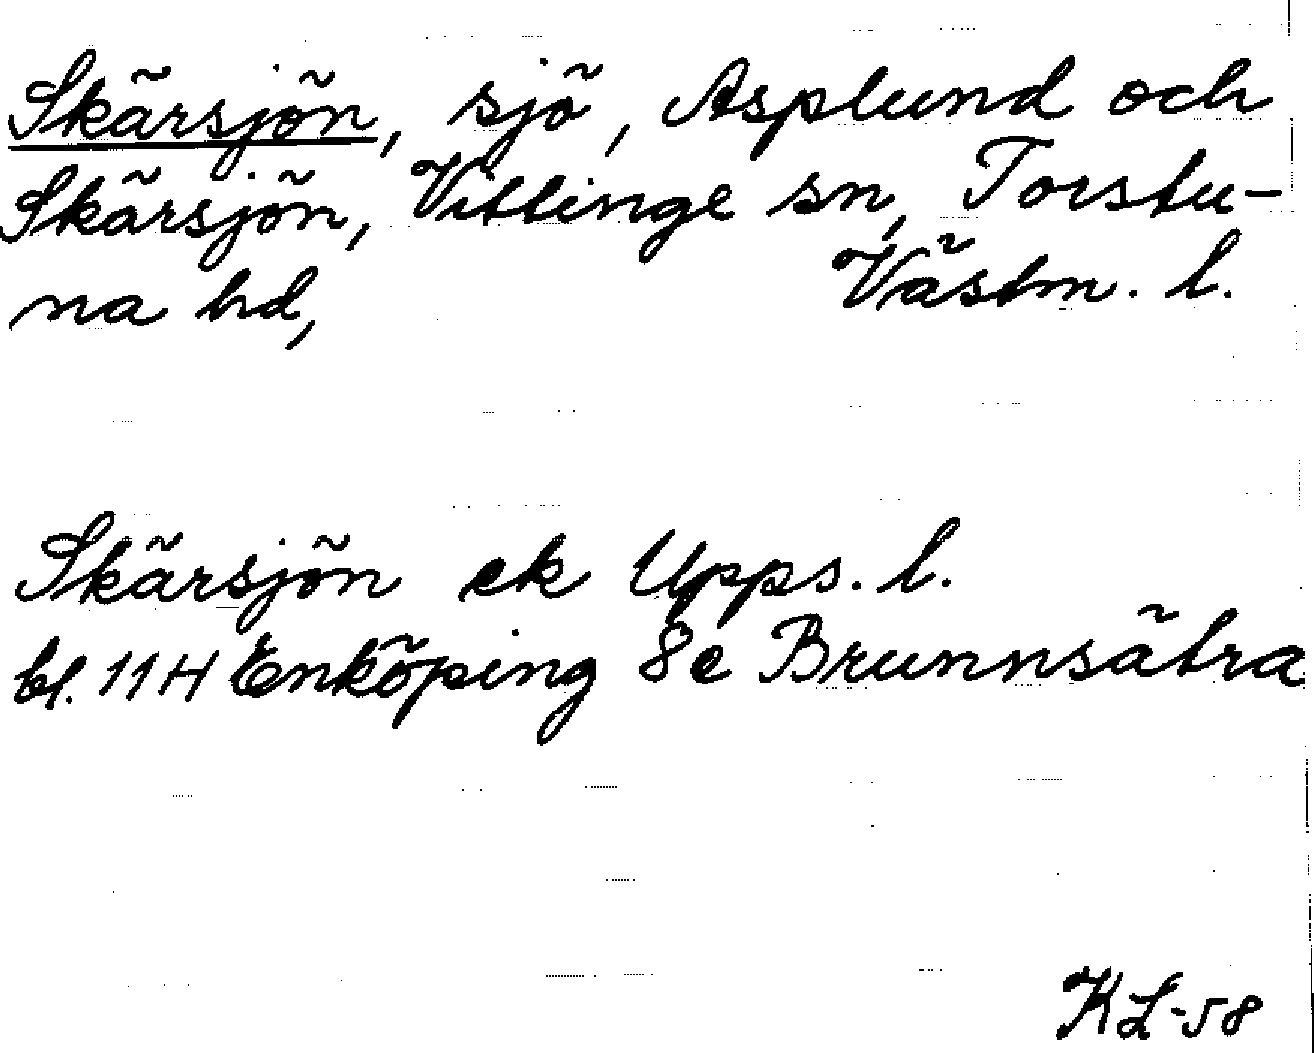 Skärsjön, sjö, Asplund och
Skärsjön, Vittinge sn, Torstu-
na hd, Västm. l.
Skärsjön ek Upps. l.
bl. 11 H Enköping 8e Brunnsätra
KL-58